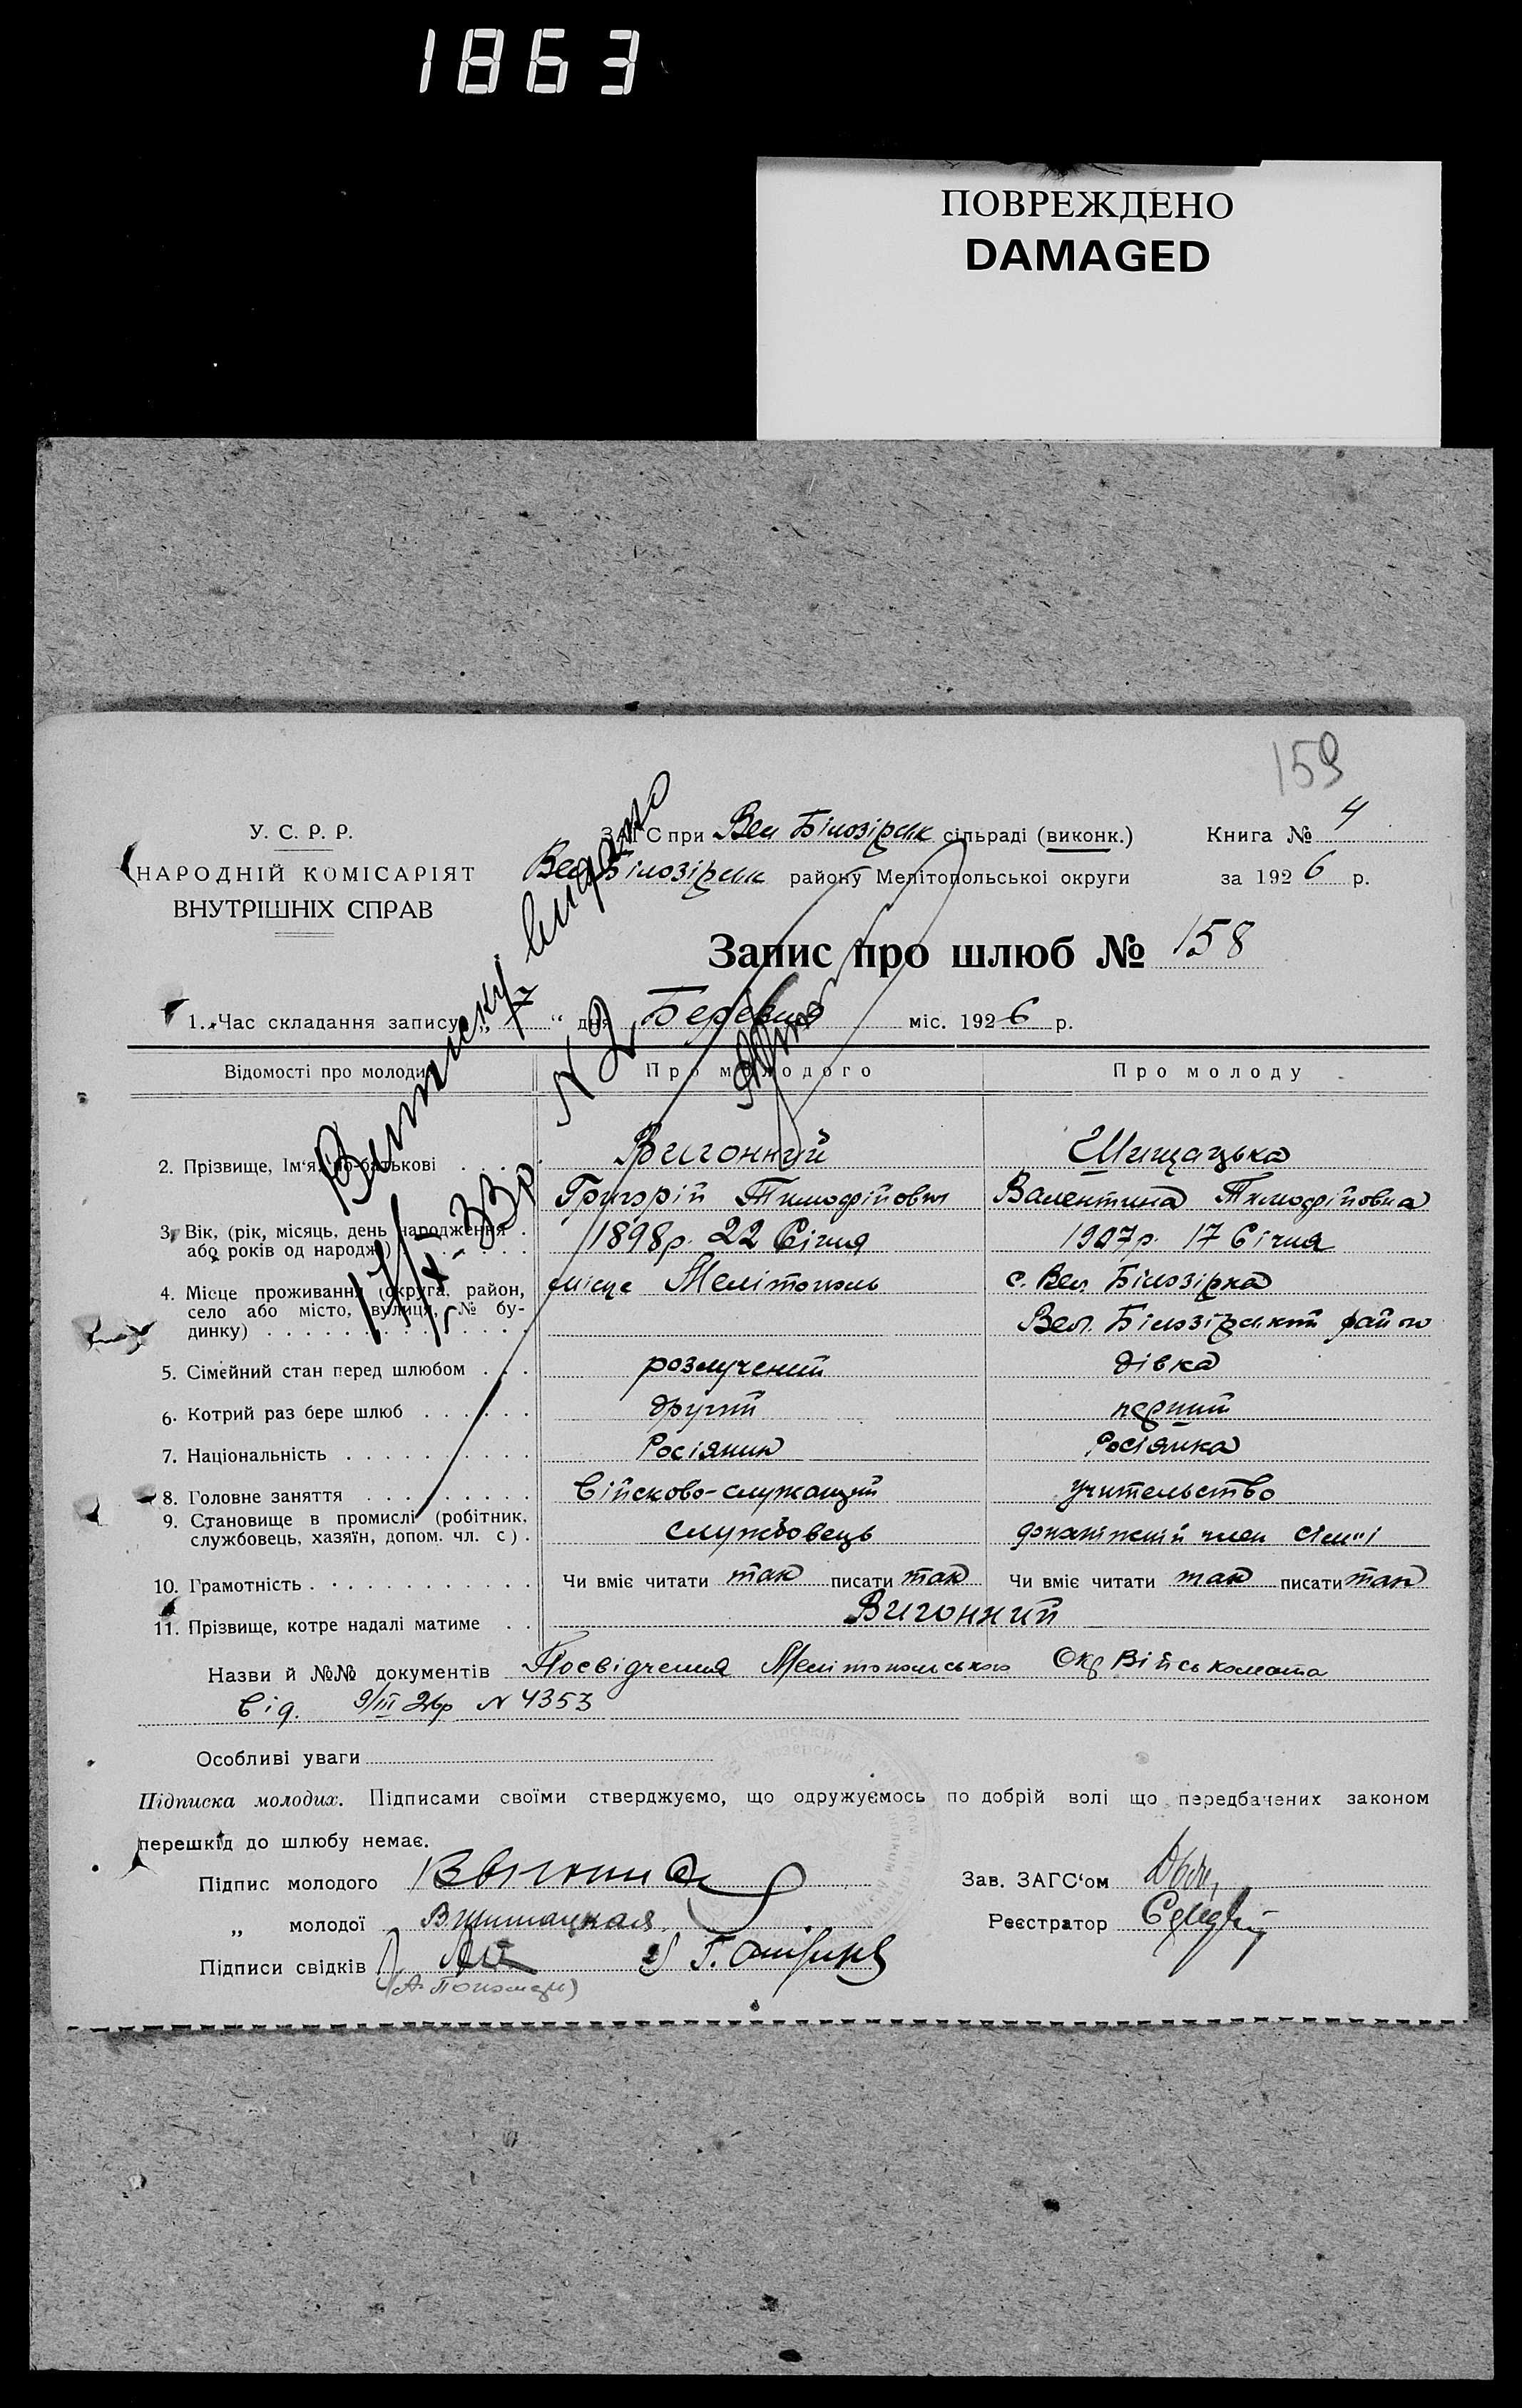 1863
ПОВРЕЖДЕНО
DAMAGED
159
У. С. Р. Р.
НАРОДНІЙ КОМІСАРІЯТ
ВНУТРІШНІХ СПРАВ
ЗАГС при Вел Білозірськ сільраді (виконк.)
Вел Білозірськ району Мелітопольської округи
Книга № 4
за 1926 р.
Запис про шлюб № 158
1. Час складання запису „ “ дня Березня міс. 1926 р.
Виписку видано
N 2
Відомості про молодих
Про молодого
Про молоду
2. Прізвище, Ім‘я, по-батькові
Вигонний
Григорій Тимофійович
Шишацька
Валентина Тимофійовна
3. Вік, (рік, місяць, день народження
або років од народж.)
1898р. 22 Січня
1907р. 17 Січня
4. Місце проживання (округа, район,
село або місто, вулиця, № бу-
динку)
місце Мелітополь
с. Вел. Білозірка
Вел. Білозірський район
5. Сімейний стан перед шлюбом
розлучений
дівка
6. Котрий раз бере шлюб
другий
перший
7. Національність
Росіянин
Росіянка
8. Головне заняття
Військово-служащий
учительство
9. Становище в промислі (робітник,
службовець, хазяїн, допом. чл. с)
службовець
член сім"ї
10. Грамотність
Чи вміє читати так писати так
Чи вміє читати так писати так
11. Прізвище, котре надалі матиме
Вигонний
Назви й №№ документів Посвідчення Мелітопольського Окр Військомата
Від. 9/III 26р N 4353
Особливі уваги
Підписка молодих. Підписами своїми стверджуємо, що одружуємось по добрій волі що передбачених законом
перешкід до шлюбу немає.
Підпис молодого
Зав. ЗАГС‘ом
„ молодої ВШишацкая
Реєстратор
Підписи свідків